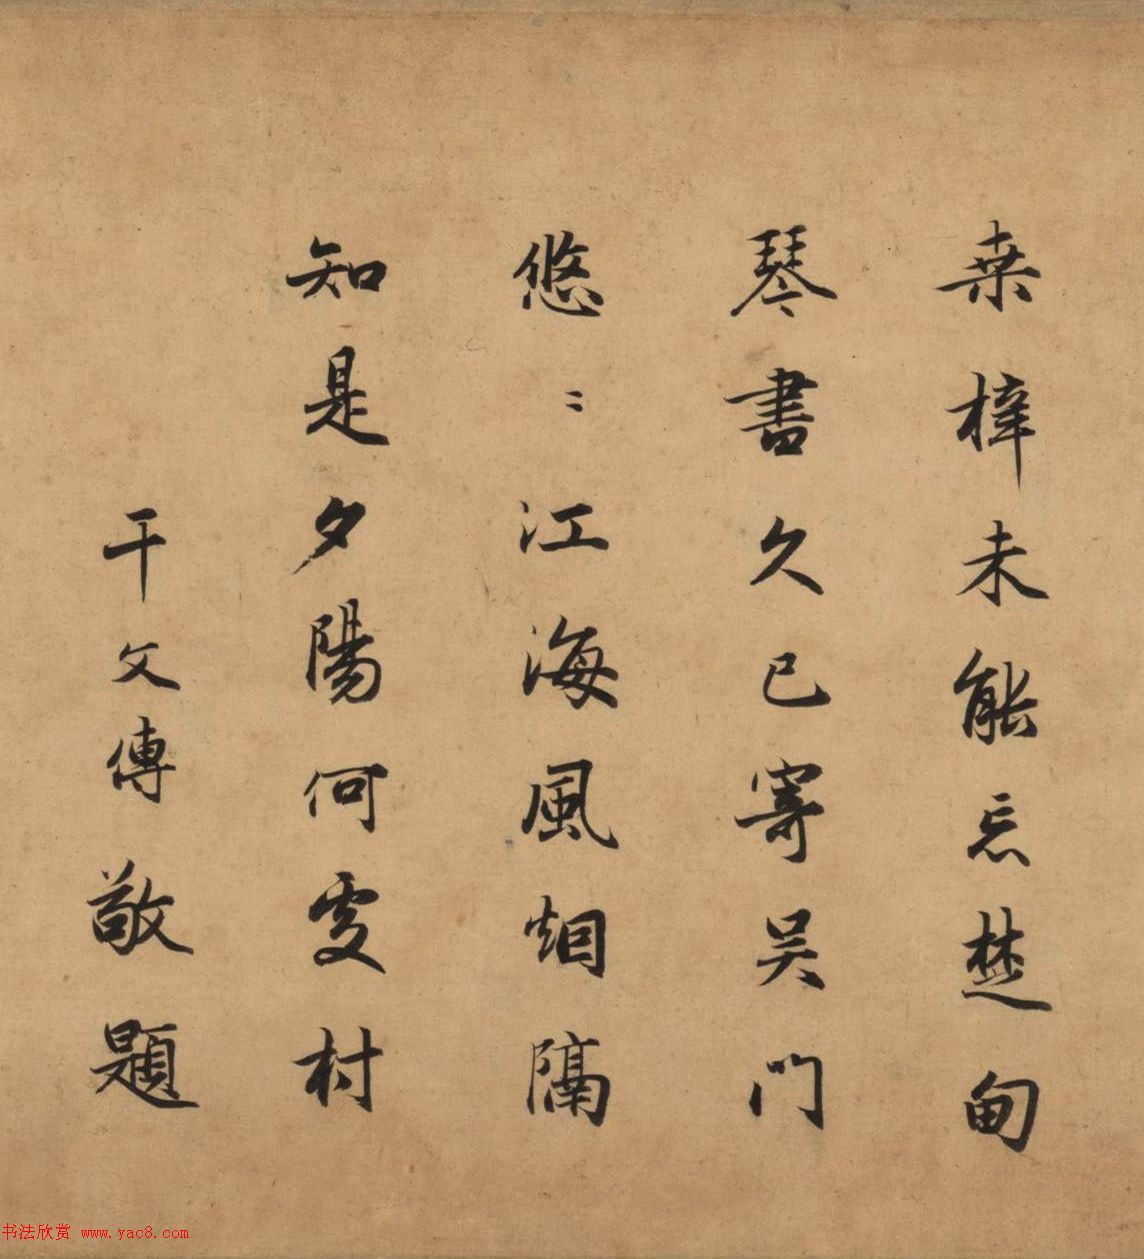 桒梓未能忘楚甸
琴書久已寄吴門
悠〻江海風烟隔
知是夕陽何處村
干文傳敬題
书法欣赏 www.yac8.com